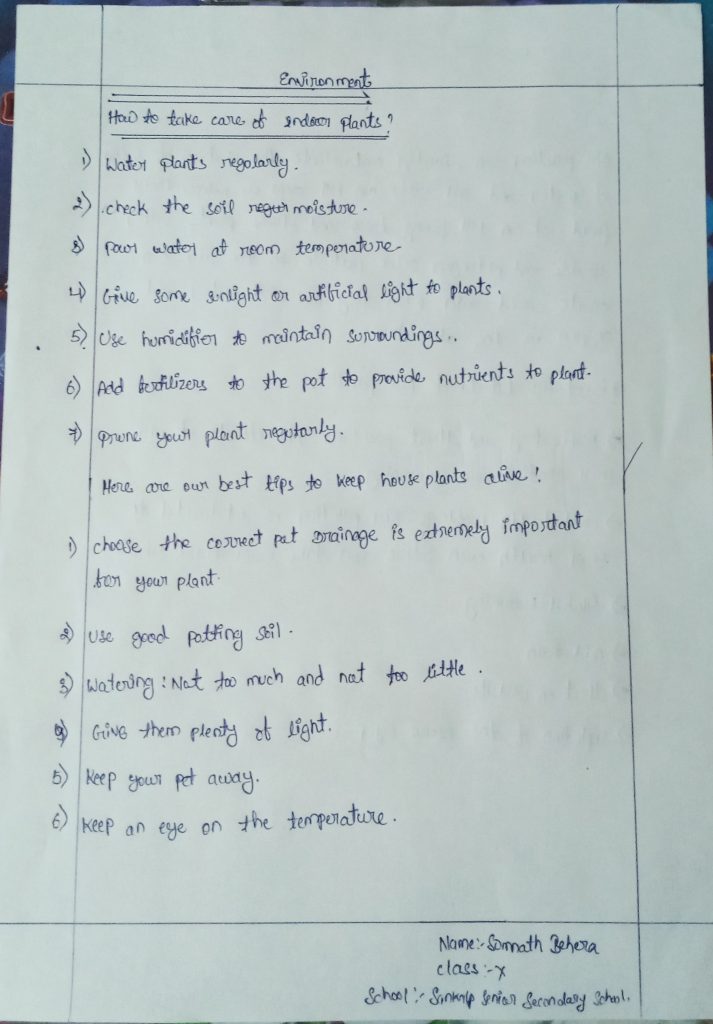 Environment
How to take care of indoor plants?
1) Water plants regolarly.
2) .check the soil moisture.
3) Pour water at room temperature
4) Give some sunlight or artificial light to plants.
5) Use humidifier to maintain surroundings..
6) Add fertilizers to the pot to provide nutrients to plant.
7) Prune your plant regularly.
Here are our best tips to keep house plants alive!
1) choose the correct pat Drainage is extremely important
for your plant.
2) use good potting soil.
3) Watering: Not too much and not too little.
4) GiNG them plenty of light.
5) Keep your pet away.
6) Keep an eye on the temperature.
Name:- Somnath Behera
class:-X
School:- Senior Secondary School.